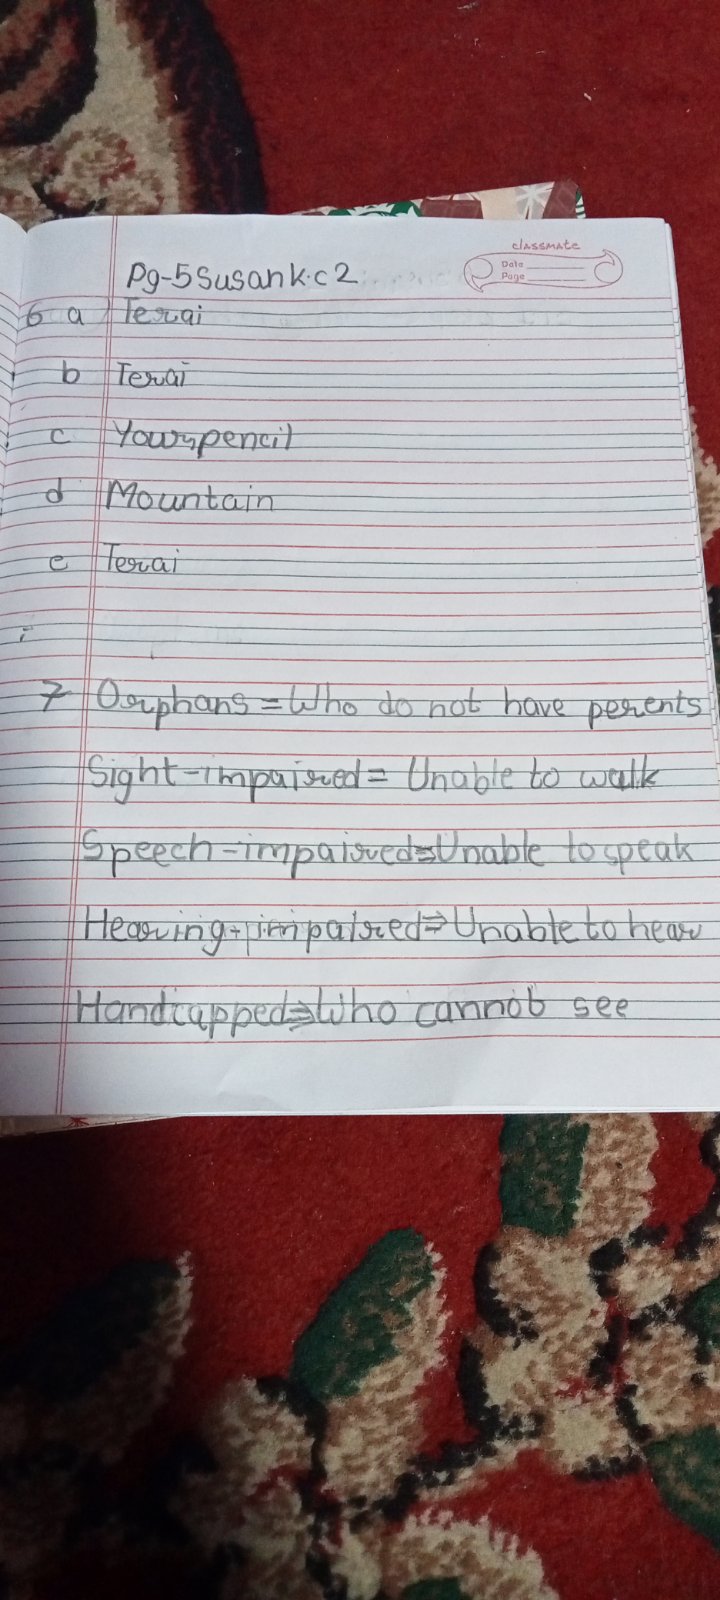 classmate
Date
Page
Pg-5 Susan k.c 2
6 a) Terai
b Terai
c Your pencil
d Mountain
e Terai
7 Orphans = Who do not have perents
Sight-impaired = Unable to walk
Speech-impaired = Unable to speak
Hearing-impaired = Unable to hear
Handicapped = Who cannot see